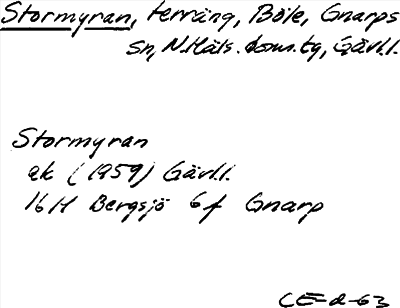 Stormyran, terräng, Böle, Gnarps
sn, N.Häls. doms.tg, Gävl.l.
Stormyran
ek (1959) Gävl.l.
16 H Bergsjö 6f Gnarp
CE-d-63